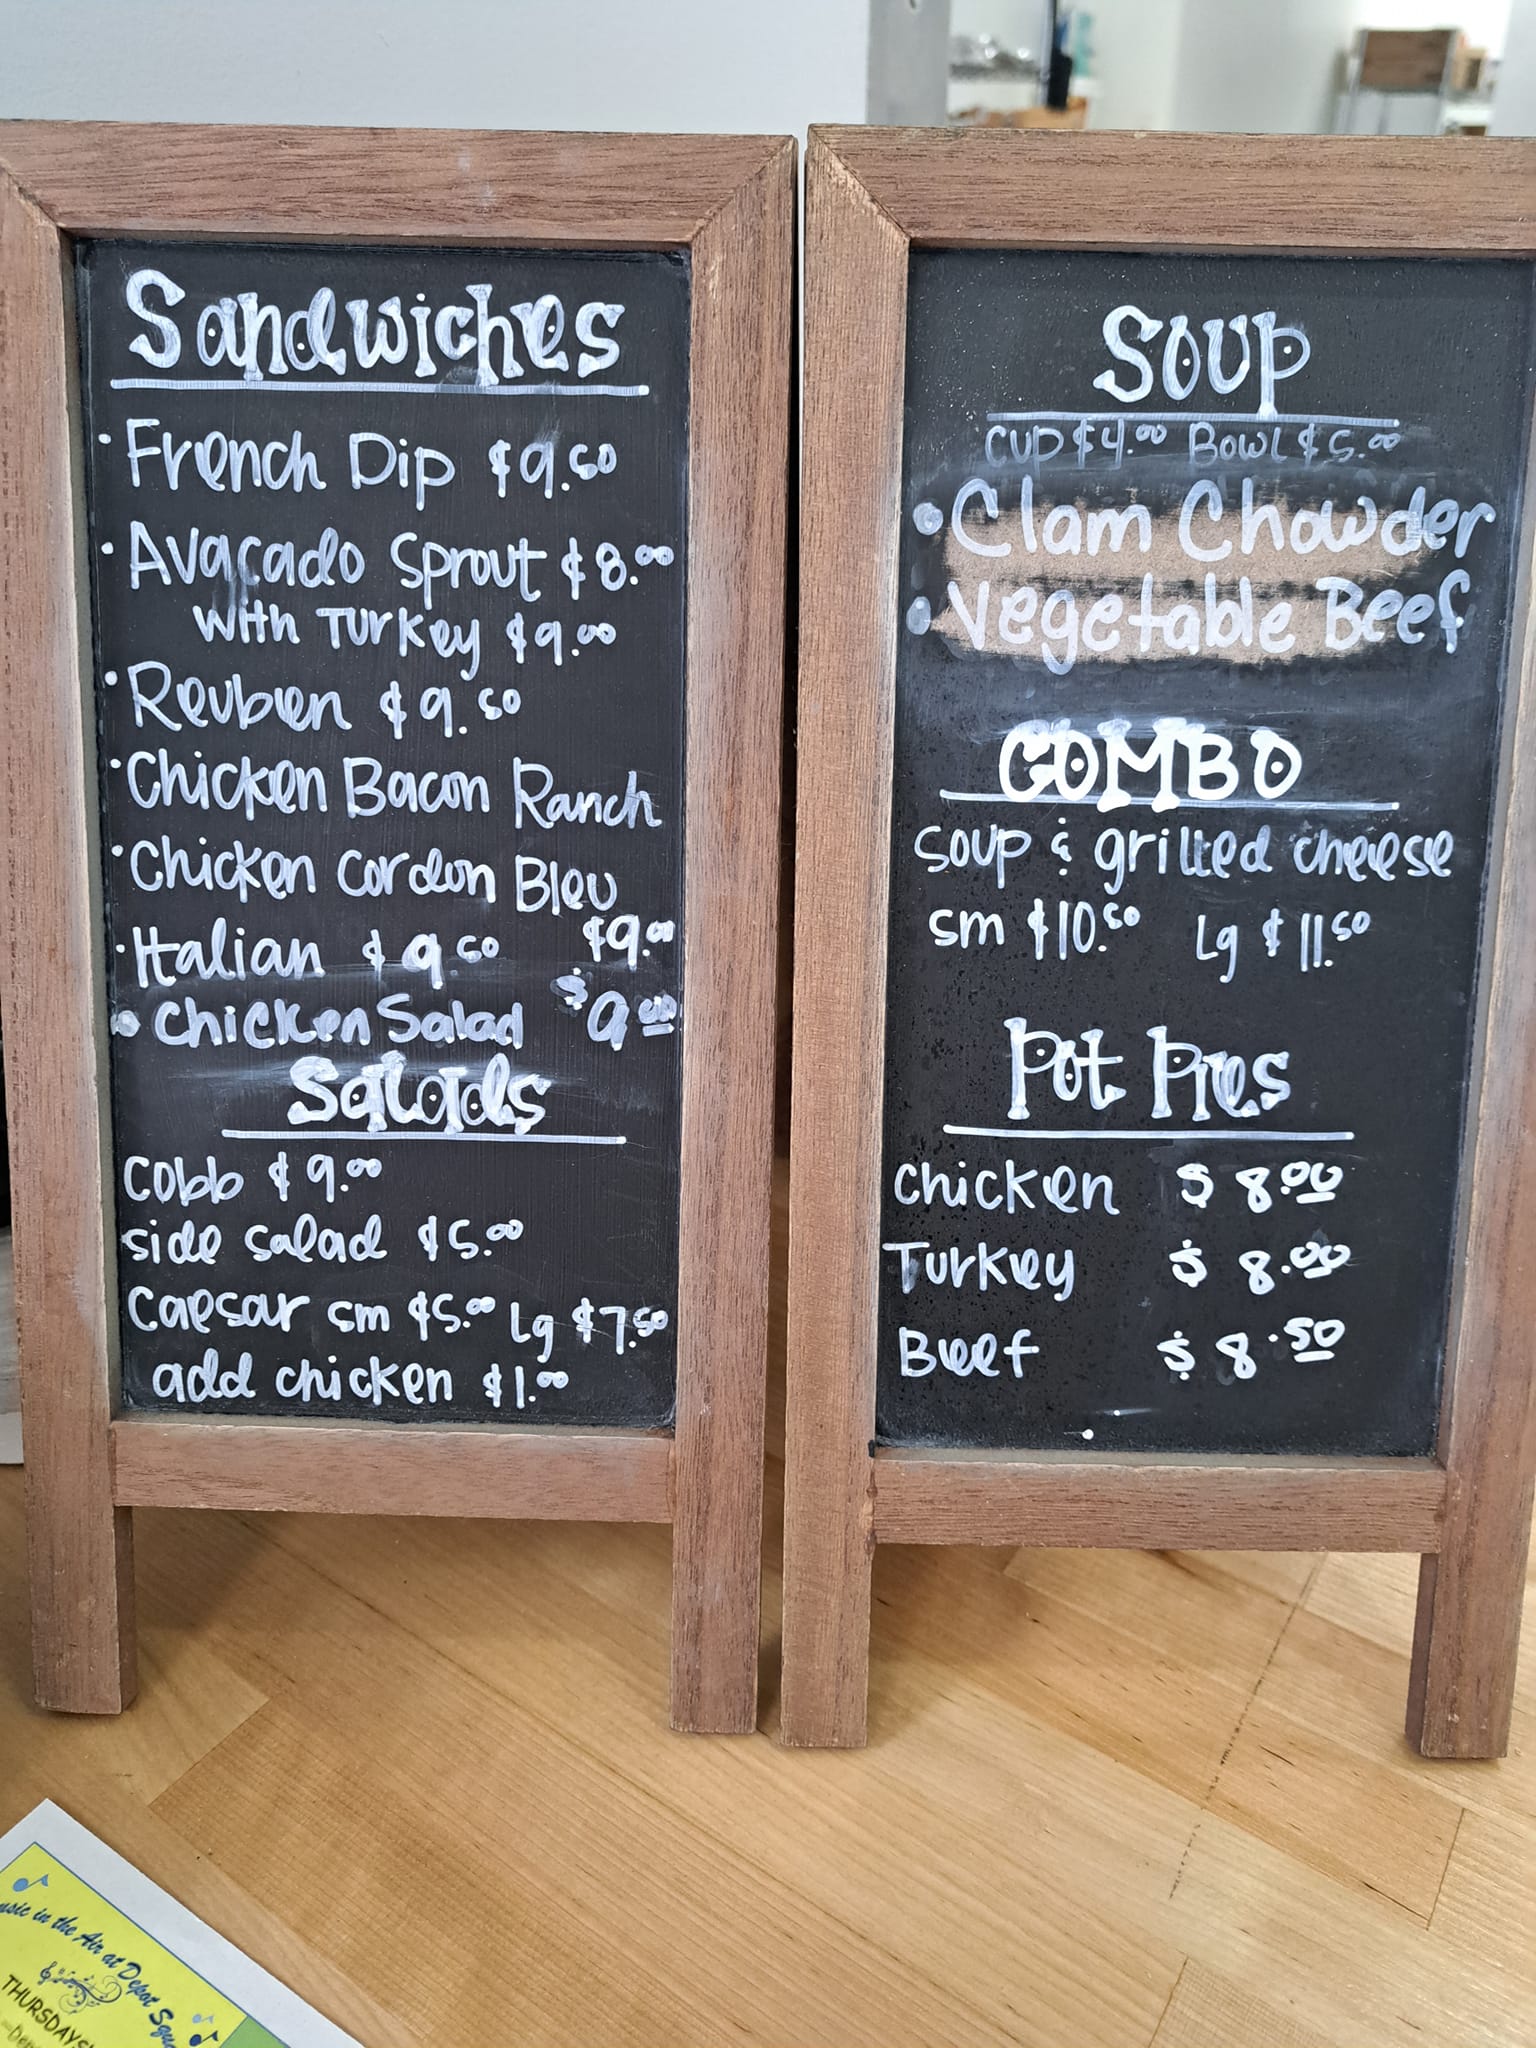 Sandwiches
• French Dip $9.50
• Avacado Sprout $8.00
with Turkey $9.00
• Reuben $9.50
• Chicken Bacon Ranch
• Chicken Cordon Bleu
$9.00
• Italian $9.50
• Chicken Salad $9.00
Salads
Cobb $9.00
side salad $5.00
Caesar sm $5.00 Lg $7.50
add chicken $1.00
Soup
Cup $4.00 Bowl $5.00
• Clam Chowder
• Vegetable Beef
COMBO
soup & grilled cheese
sm $10.50 Lg $11.50
Pot Pies
Chicken $8.00
Turkey $8.00
Beef $8.50
in the Air at Depot
THURSDAYS